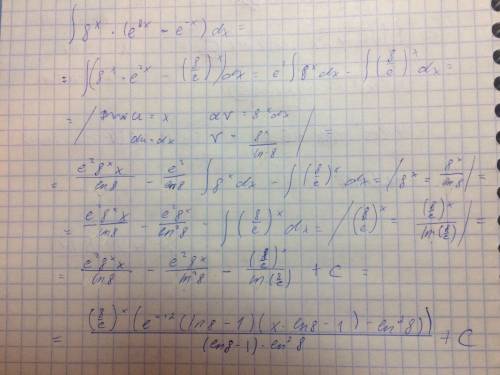 ∫ 8^x · (e^{2x} − e^{−x}) dx =
= ∫ (8^x · e^{2x} (8/e)^x) dx = e^2 ∫ 8^x dx − ∫ (8/e)^x dx =
= / u = x dv = 8^x dx
du = dx v = 8^x/ln 8 / =
= e^2 8^x x/ln 8 − e^2/ln 8 ∫ 8^x dx − ∫ (8/e)^x dx = / 8^x = 8^x/ln 8 / =
= e^2 8^x x/ln 8 − e^2 8^x/ln^2 8 − ∫ (8/e)^x dx = / (8/e)^x = (8/e)^x/ln(8/e) / =
= e^2 8^x x/ln 8 − e^2 8^x/ln^2 8 − (8/e)^x/ln(8/e) + C =
= (8/e)^x (e^{x+2} (ln 8 − 1)(x · ln 8 − 1) − ln^2 8)/(ln 8 − 1) · ln^2 8 + C